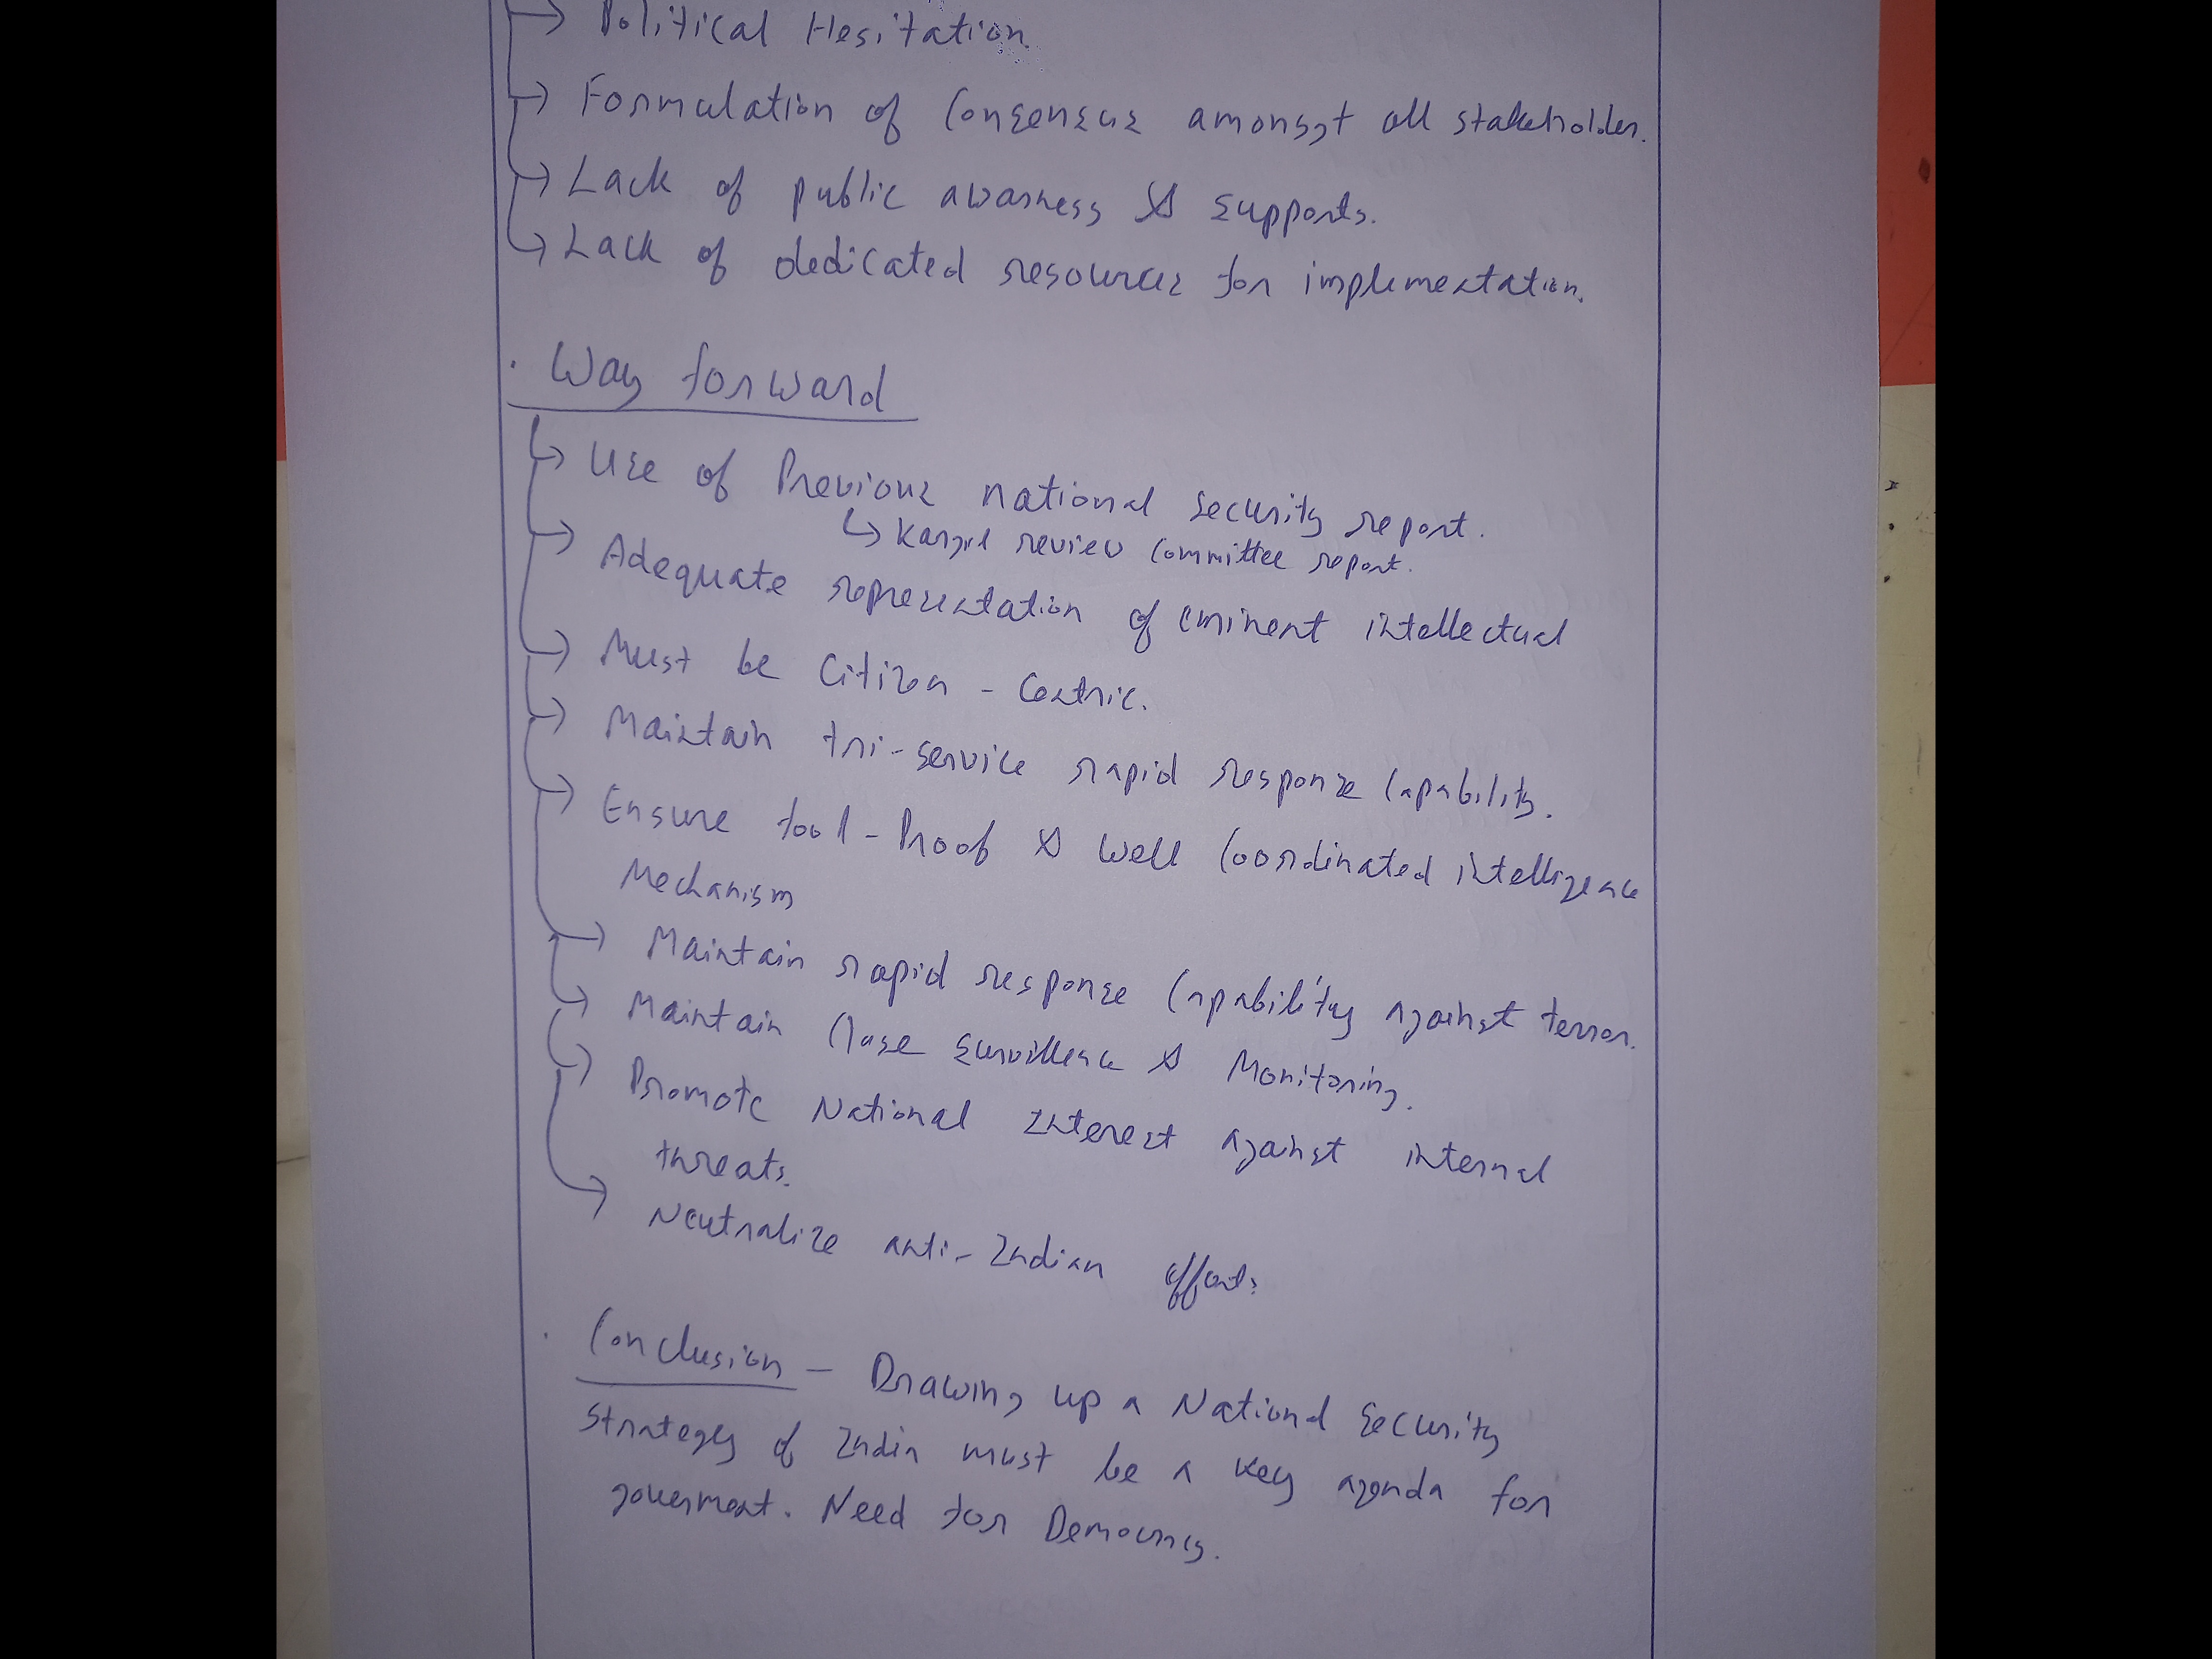 → Political Hesitation
→ Formulation of Consensus amongst all stakeholder.
→ Lack of public awarness & supports.
→ Lack of dedicated resources for implementation.
. Way forward
→ Use of Previous national security report.
↳ Kargil review committee report.
→ Adequate representation of eminent intellectual
→ Must be Citizen - Centric.
→ Maintain tri-service rapid response capability.
→ Ensure fool-Proof & well coordinated intelligence
Mechanism
→ Maintain rapid response capability against terror.
→ Maintain close survillence & Monitoring.
→ Promote National Interest against internal
threats.
→ Neutralize anti-Indian efforts
. Conclusion - Drawing up a National Security
Strategy of India must be a key agenda for
goverment. Need for Democracy.